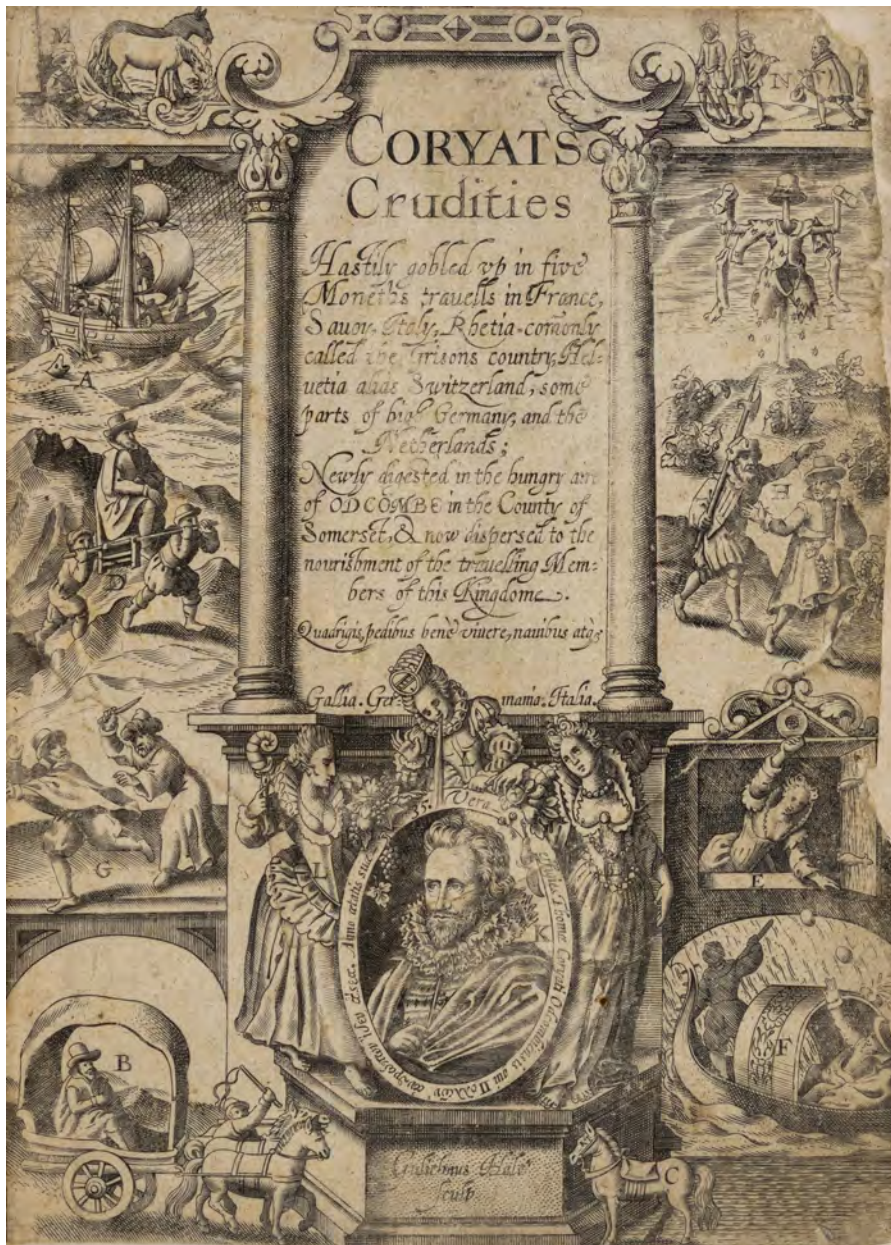 M
N
CORYATS
Crudities
Hastily gobled vp in five
Moneths travells in France,
Savoy, Italy, Rhetia comonly
called the Grisons country, Hel=
uetia aliàs Switzerland, some
parts of high Germany, and the
Netherlands;
Newly digested in the hungry
of ODCOMBE in the County of
Somerset, & now dispersed to the
nourishment of the travelling Mem=
bers of this Kingdome.
Quadrigis, pedibus benè viuere, nauibus atq;
Gallia. Ger= mania. Italia.
A
I
H
G
L
L
K
E
B
F
C
Vera
Thomæ Coryati Odcombiensis qui Πολλῶν ἀνθρώπων ἴδεν ἄστεα. Anno ætatis suæ 35.
Gulielmus Hole
sculp